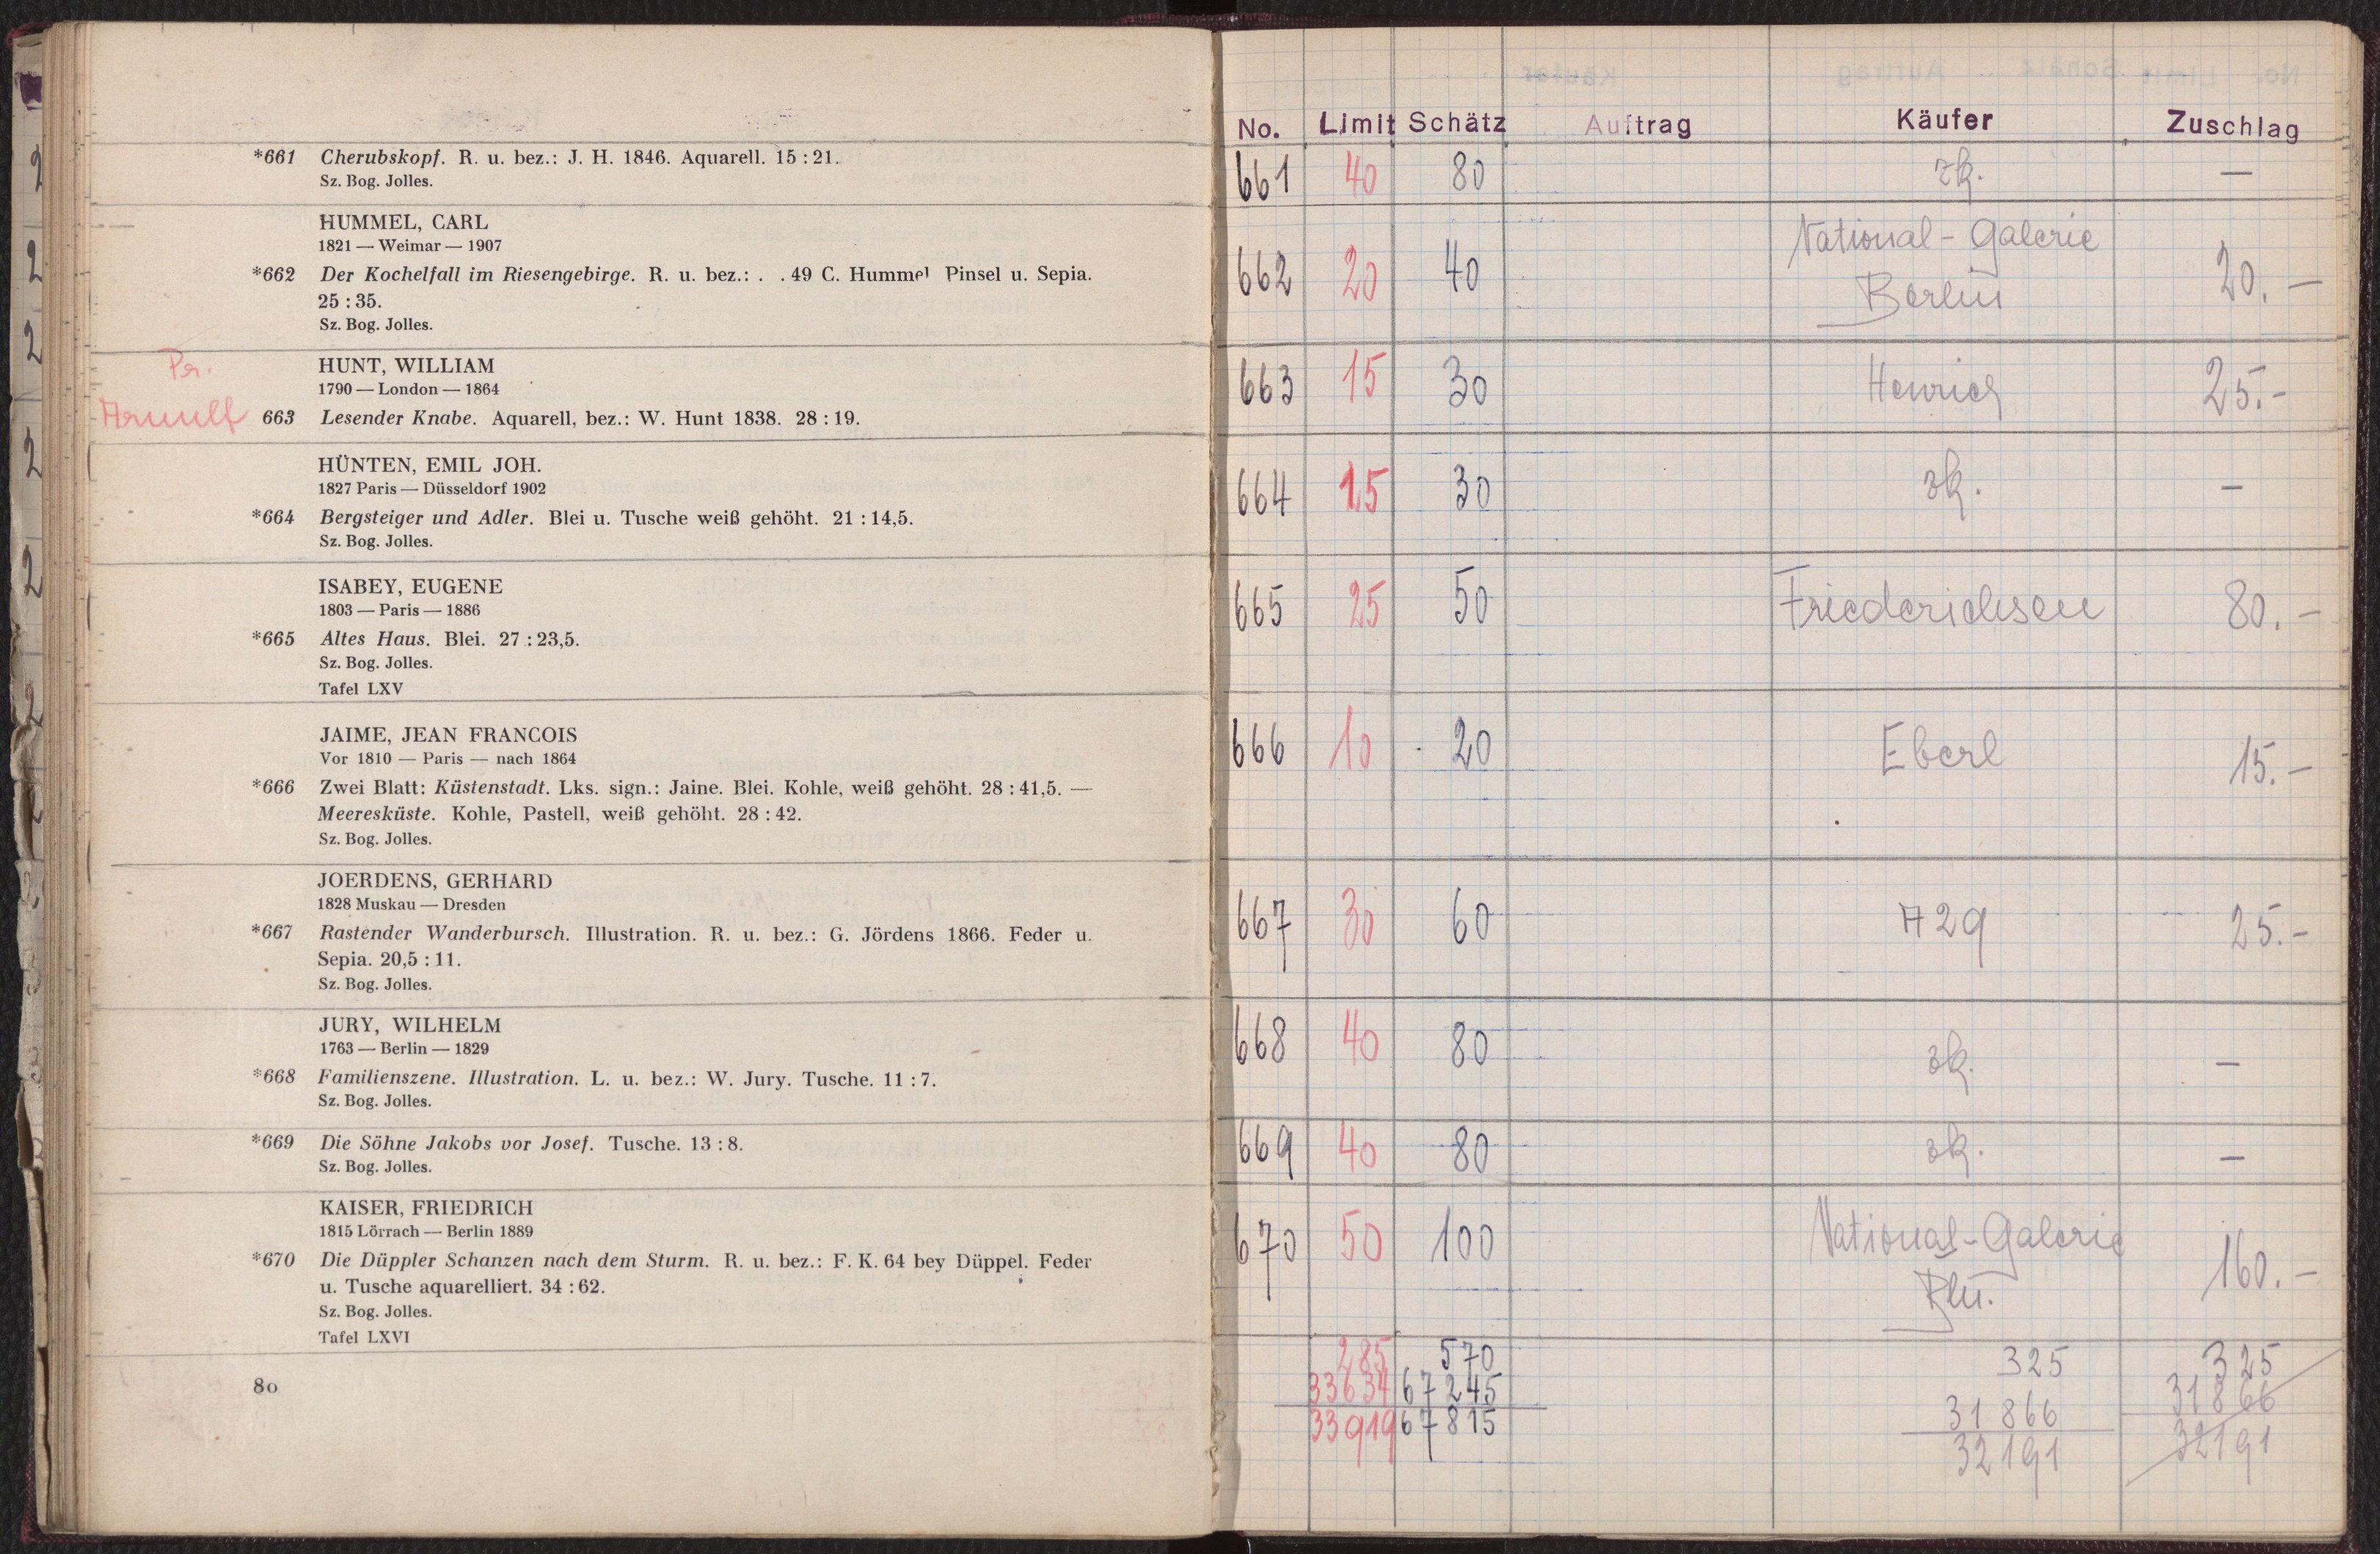 *661 Cherubskopf. R. u. bez.: J. H. 1846. Aquarell. 15 : 21.
Sz. Bog. Jolles.
HUMMEL, CARL
1821 — Weimar — 1907
*662 Der Kochelfall im Riesengebirge. R. u. bez.: . . 49 C. Hummel Pinsel u. Sepia.
25 : 35.
Sz. Bog. Jolles.
Pr.
HUNT, WILLIAM
1790 — London — 1864
Arnulf 663 Lesender Knabe. Aquarell, bez.: W. Hunt 1838. 28 : 19.
HÜNTEN, EMIL JOH.
1827 Paris — Düsseldorf 1902
*664 Bergsteiger und Adler. Blei u. Tusche weiß gehöht. 21 : 14,5.
Sz. Bog. Jolles.
ISABEY, EUGENE
1803 — Paris — 1886
*665 Altes Haus. Blei. 27 : 23,5.
Sz. Bog. Jolles.
Tafel LXV
JAIME, JEAN FRANCOIS
Vor 1810 — Paris — nach 1864
*666 Zwei Blatt: Küstenstadt. Lks. sign.: Jaine. Blei. Kohle, weiß gehöht. 28 : 41,5. —
Meeresküste. Kohle, Pastell, weiß gehöht. 28 : 42.
Sz. Bog. Jolles.
JOERDENS, GERHARD
1828 Muskau — Dresden
*667 Rastender Wanderbursch. Illustration. R. u. bez.: G. Jördens 1866. Feder u.
Sepia. 20,5 : 11.
Sz. Bog. Jolles.
JURY, WILHELM
1763 — Berlin — 1829
*668 Familienszene. Illustration. L. u. bez.: W. Jury. Tusche. 11 : 7.
Sz. Bog. Jolles.
*669 Die Söhne Jakobs vor Josef. Tusche. 13 : 8.
Sz. Bog. Jolles.
KAISER, FRIEDRICH
1815 Lörrach — Berlin 1889
*670 Die Düppler Schanzen nach dem Sturm. R. u. bez.: F. K. 64 bey Düppel. Feder
u. Tusche aquarelliert. 34 : 62.
Sz. Bog. Jolles.
Tafel LXVI
80
No. Limit Schätz Auftrag Käufer Zuschlag
661 40 80 zk. —
662 20 40 National-Galerie Berlin 20.—
663 15 30 Henrich 25.-
664 15 30 zk. —
665 25 50 Friederichsen 80.—
666 10 20 Eberl 15.—
667 30 60 A29 25.-
668 40 80 zk. —
669 40 80 zk. —
670 50 100 National-Galerie Bln. 160.—
285 570 325 325
33634 67245 31866 31866
33919 67815 32191 32191